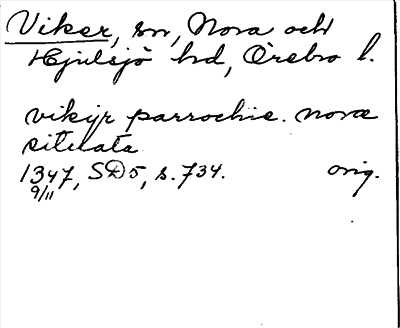 Viker, sn, Nora och
Hjulsjö hd, Örebro l.
vikijr parrochie. nora
situata
1347, SD5, s. 734. orig.
9/11